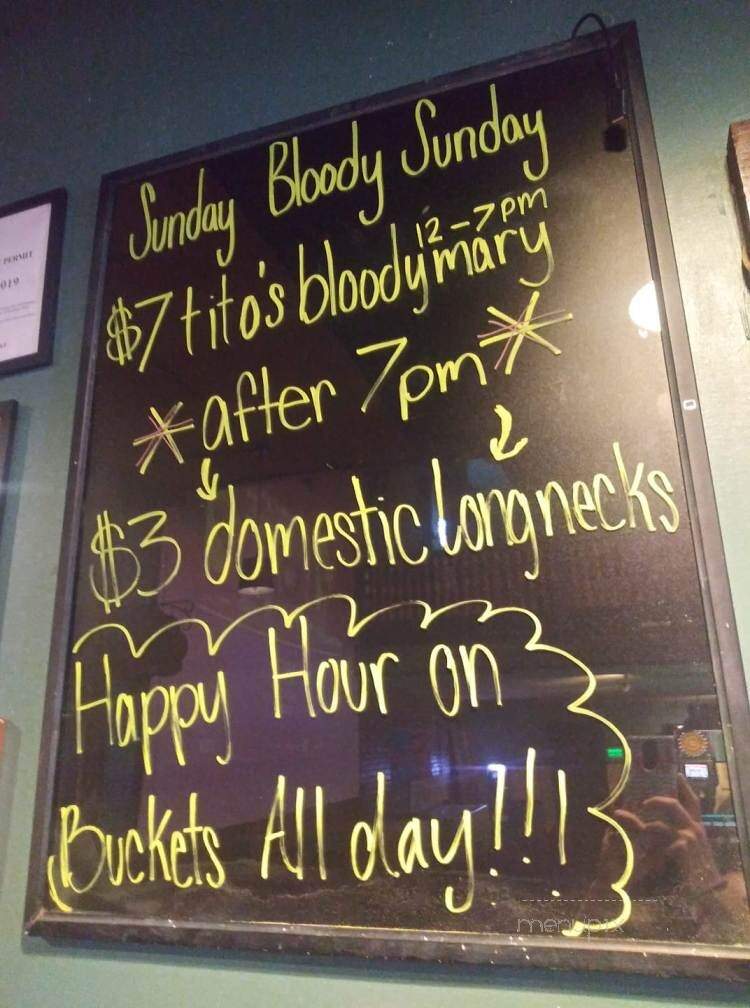 Sunday Bloody Sunday
12-7pm
$7 tito's bloody mary
*after 7pm*
$3 domestic longnecks
Happy Hour on
Buckets All day!!!
PERMIT
menupix